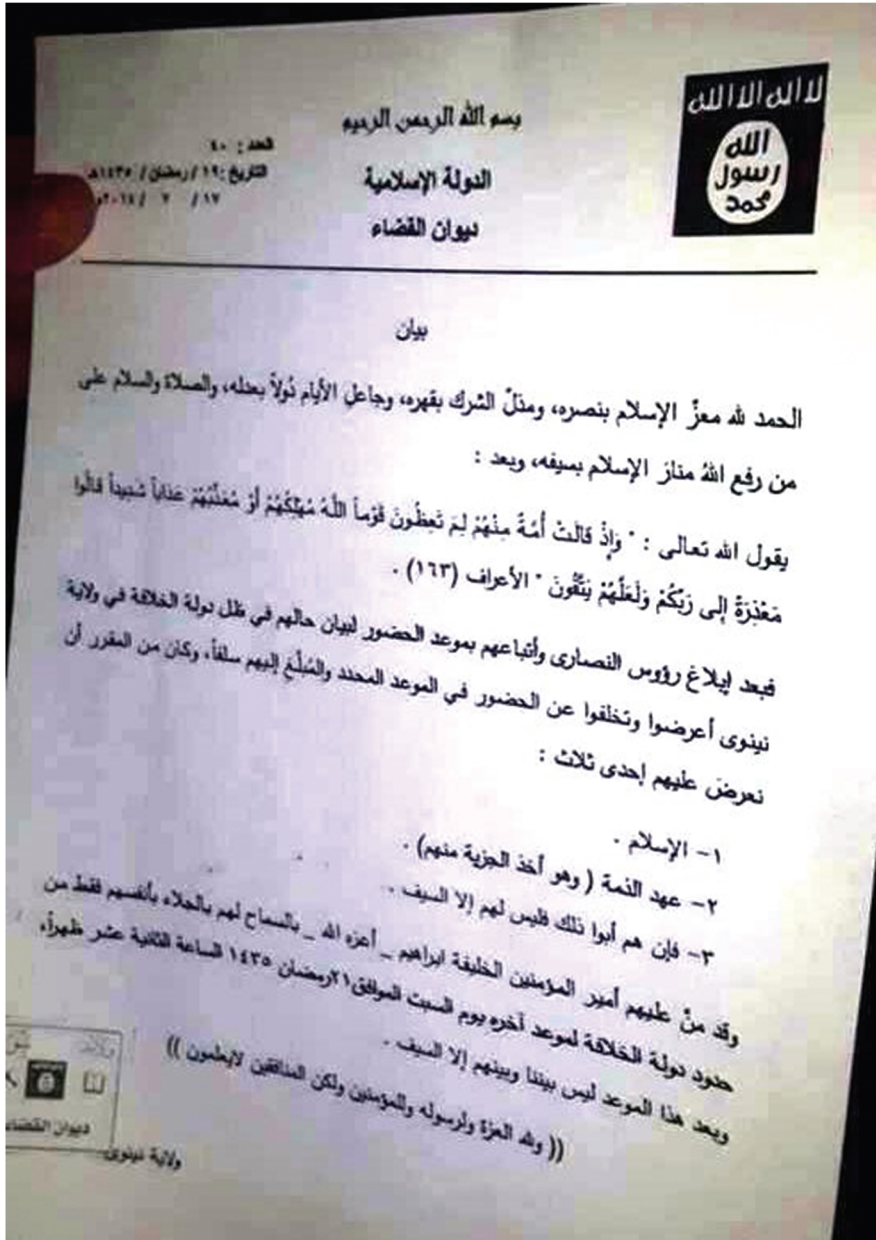 لا اله الا الله
الله
رسول
محمد
بسم الله الرحمن الرحيم
الدولة الإسلامية
ديوان القضاء
العدد : ٤٠
التاريخ : ١٩ / رمضان / ١٤٣٥هـ
١٧ / ٧ / ٢٠١٤م
بيان
الحمد لله معزِّ الإسلام بنصره، ومذلّ الشرك بقهره، وجاعل الأيام دُولاً بعدله، والصلاة والسلام على
من رفع اللهُ منارَ الإسلام بسيفه، وبعد :
يقول الله تعالى : " وَإِذْ قَالَتْ أُمَّةٌ مِنْهُمْ لِمَ تَعِظُونَ قَوْماً اللَّهُ مُهْلِكُهُمْ أَوْ مُعَذِّبُهُمْ عَذَاباً شَدِيداً قَالُوا
مَعْذِرَةً إِلَى رَبِّكُمْ وَلَعَلَّهُمْ يَتَّقُونَ " الأعراف (١٦٣) .
فبعد إبلاغ رؤوس النصارى وأتباعهم بموعد الحضور لبيان حالهم في ظل دولة الخلافة في ولاية
نينوى أعرضوا وتخلفوا عن الحضور في الموعد المحدد والمُبلَّغ إليهم سلفاً، وكان من المقرر أن
نعرضَ عليهم إحدى ثلاث :
١- الإسلام .
٢- عهد الذمة ( وهو أخذ الجزية منهم) .
٣- فإن هم أبوا ذلك فليس لهم إلا السيف .
وقد منَّ عليهم أمير المؤمنين الخليفة ابراهيم _ أعزه الله _ بالسماح لهم بالجلاء بأنفسهم فقط من
حدود دولة الخلافة لموعد آخره يوم السبت الموافق٢١رمضان ١٤٣٥ الساعة الثانية عشر ظهراً،
وبعد هذا الموعد ليس بيننا وبينهم إلا السيف .
(( ولله العزة ولرسوله وللمؤمنين ولكن المنافقين لايعلمون ))
ديوان القضاء
ولاية نينوى